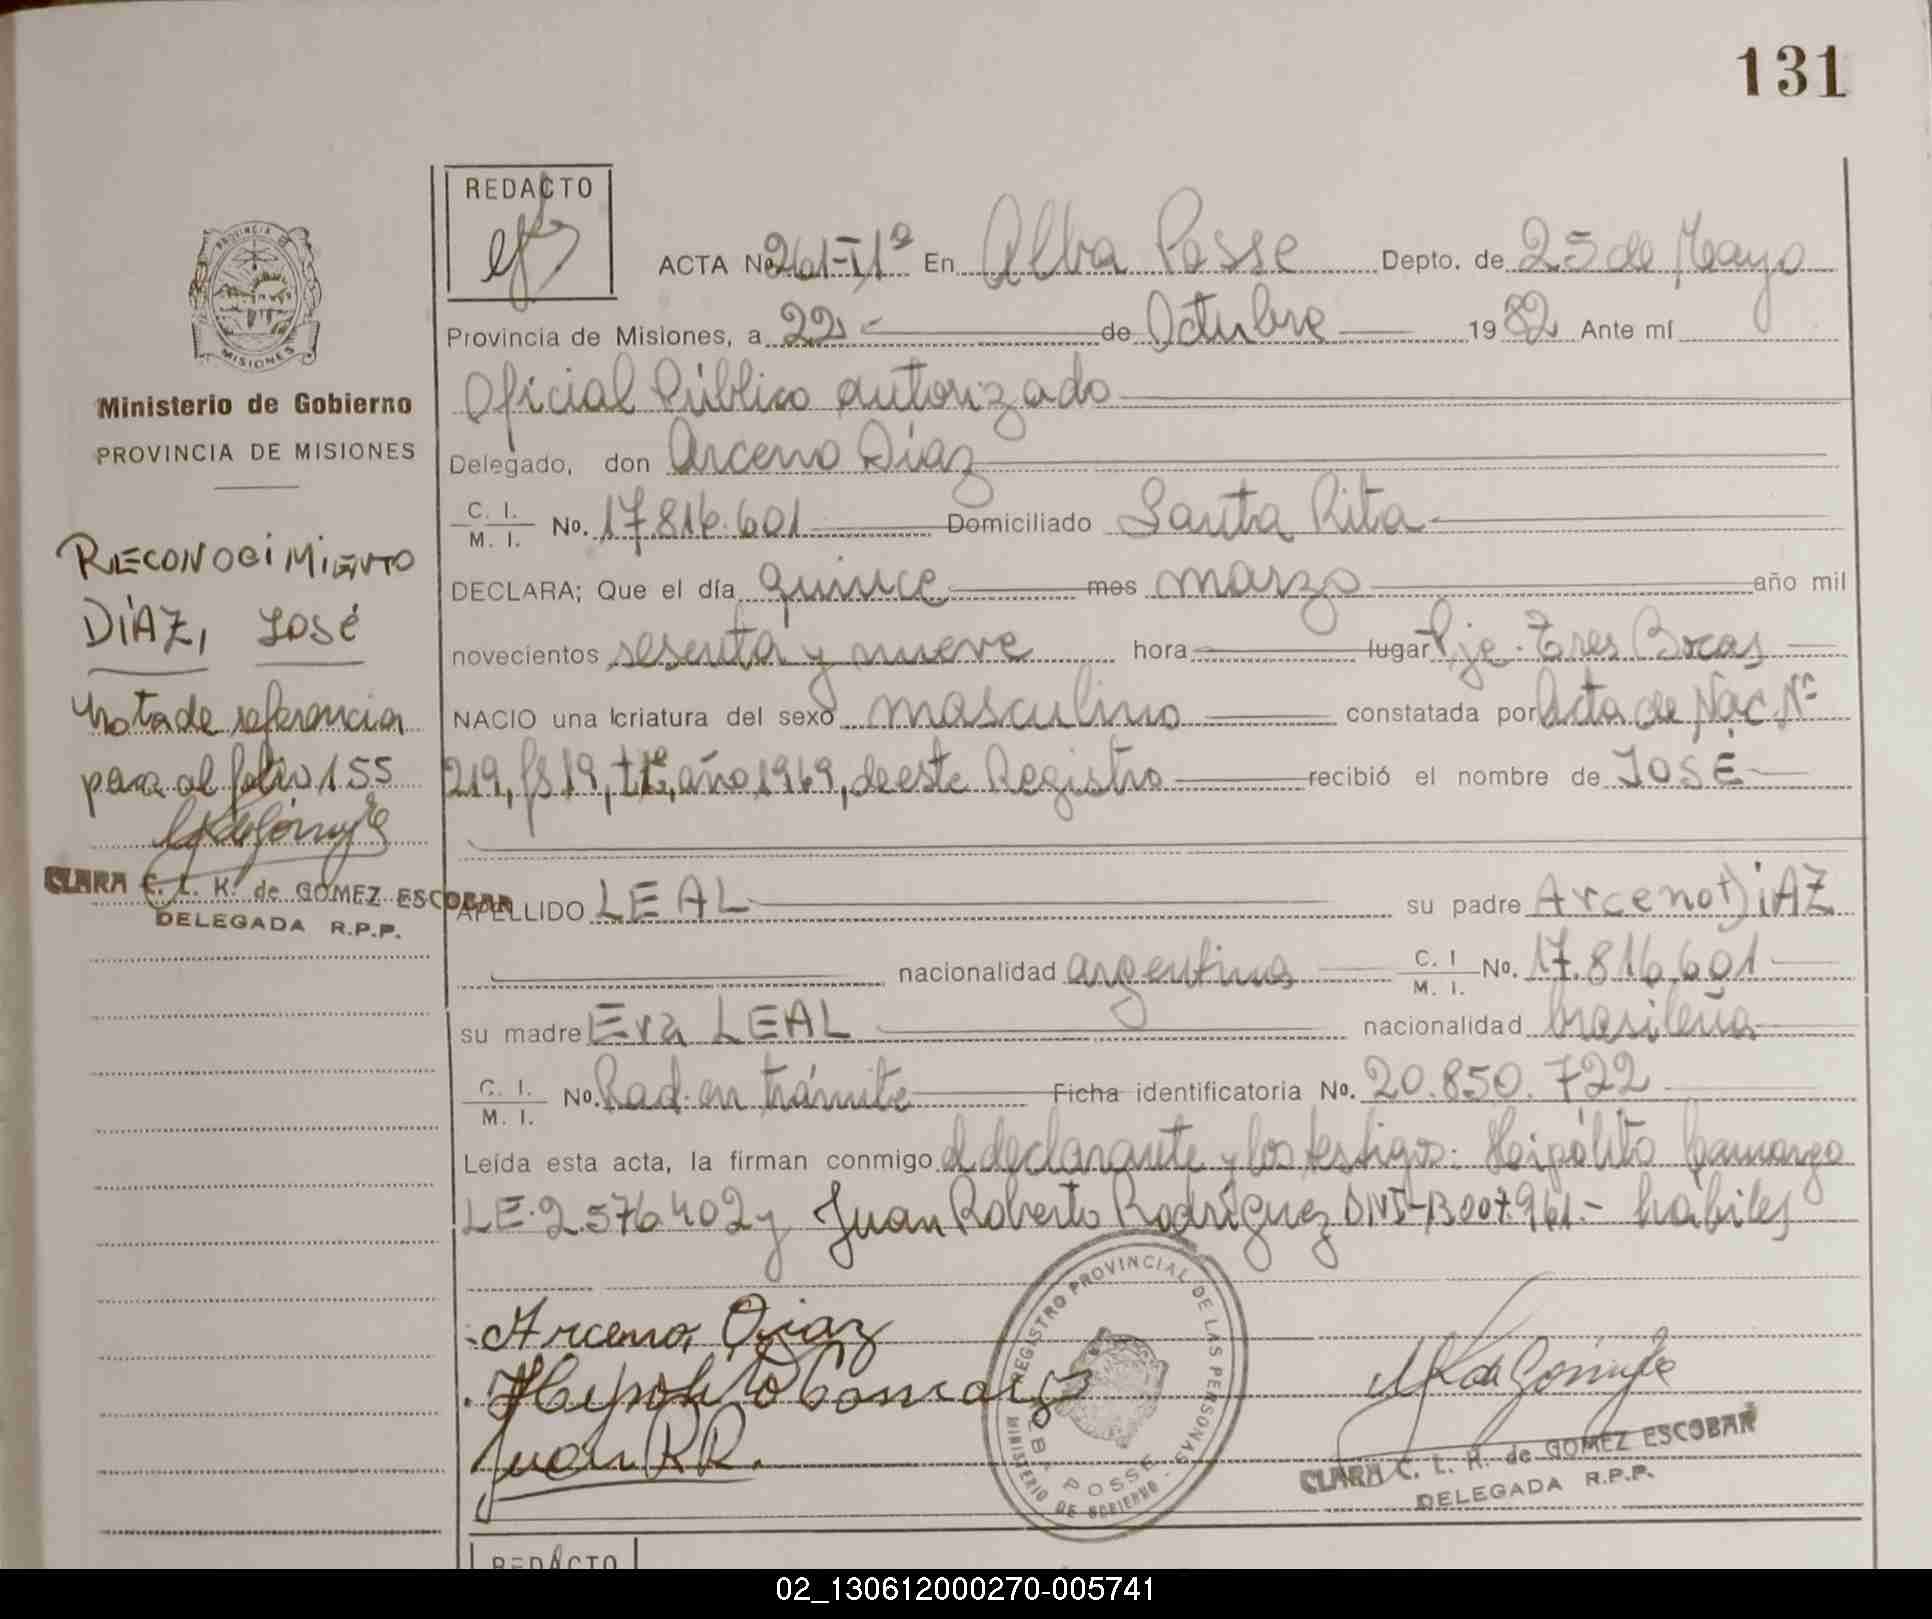 131
REDACTO
ACTA No. 261-IIª En Alba Posse Depto. de 25 de Mayo
Provincia de Misiones, a 22 de Octubre 1982 Ante mí
Oficial Público autorizado
Delegado, don Arceno Díaz
C. I.
M. I. No. 17.816.601 Domiciliado Santa Rita
DECLARA; Que el día quince mes marzo año mil
novecientos sesenta y nueve hora lugar Pje. Tres Bocas
NACIO una criatura del sexo masculino constatada por Acta de Nac Nº
219, fs 19, tº, año 1969, de este Registro recibió el nombre de JOSÉ
APELLIDO LEAL su padre Arceno DÍAZ
nacionalidad argentina C. I.
M. I. No. 17.816.601
su madre Eva LEAL nacionalidad brasileña
C. I.
M. I. No. Rad. en trámite Ficha identificatoria No. 20.850.722
Leída esta acta, la firman conmigo el declarante y los testigos: Hipólito Camargo
LE. 2.576.402 y Juan Roberto Rodríguez DNI-13.007.961.- hábiles
Arceno Diaz
Hipolito Camargo
Juan R R.
REGISTRO PROVINCIAL DE LAS PERSONAS
ALBA POSSE
MINISTERIO DE GOBIERNO
CLARA C. L. K. de GOMEZ ESCOBAR
DELEGADA R.P.P.
PROVINCIA DE
MISIONES
Ministerio de Gobierno
PROVINCIA DE MISIONES
RECONOCIMIENTO
DÍAZ, JOSÉ
Nota de referencia
para al folio 155
CLARA C. L. K. de GOMEZ ESCOBAR
DELEGADA R.P.P.
REDACTO
02_130612000270-005741